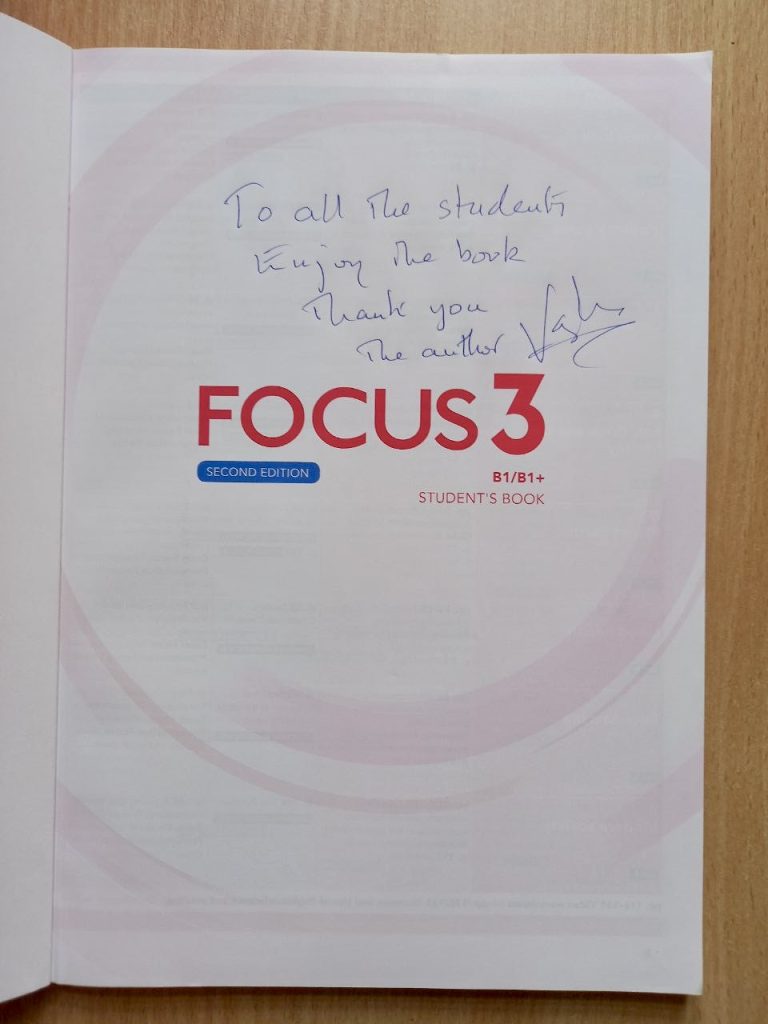 To all the students
Enjoy the book
Thank you
The author
FOCUS 3
SECOND EDITION
B1/B1+
STUDENT'S BOOK